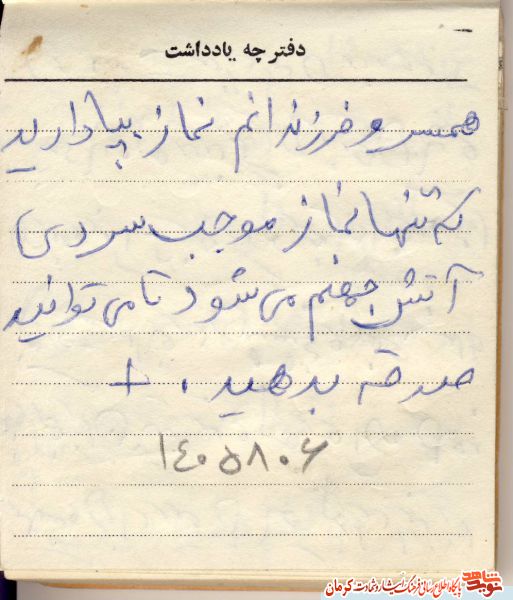 دفترچه یادداشت
همسر و فرزندانم نماز بپادارید
که تنها نماز موجب سردی
آتش جهنم می شود تا می توانید
صدقه بدهید . +
۱٤۰۵۸۰۶
نوید شاهد پایگاه اطلاع رسانی فرهنگ ایثار و شهادت کرمان